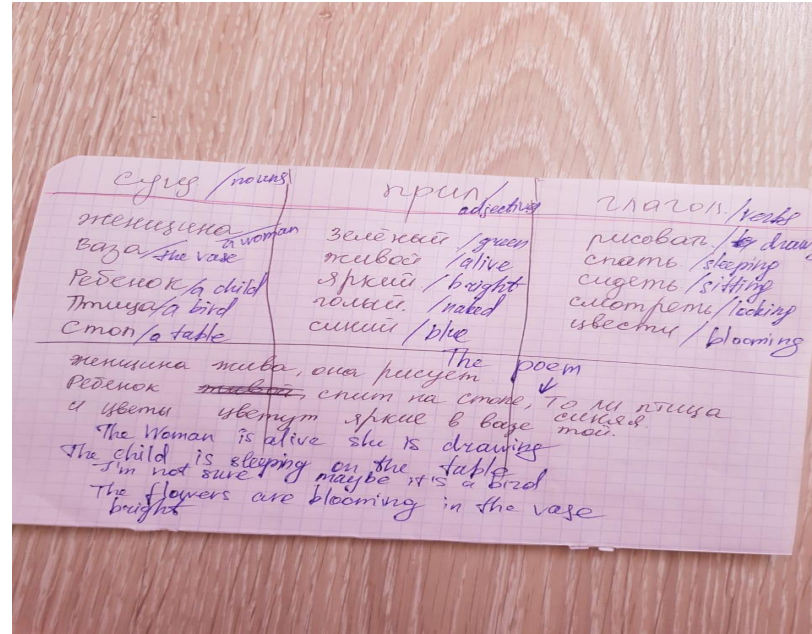 сущ /nouns прил/adjective глагол/verbs
женщина/a woman зелёный /green рисовать/to draw
Ваза/the vase живой /alive спать /sleeping
Ребенок/a child яркий /bright сидеть /sitting
Птица/a bird голый. /naked смотреть/looking
Стол/a table синий /blue цвести / blooming
The poem
женщина жива, она рисует
Ребенок спит на столе, то ли птица
и цветы цветут яркие в вазе синяя
той.
The Woman is alive she is drawing
The child is sleeping on the table
I'm not sure maybe it's a bird
The flowers are blooming in the vase
bright